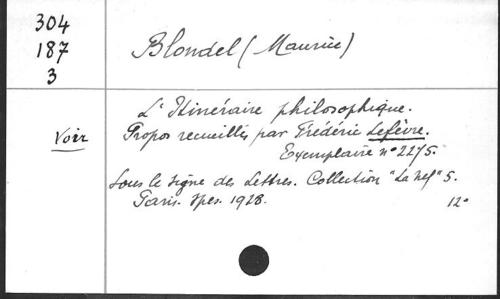 304
187
3
Blondel (Maurice)
Voir
L'Itinéraire philosophique.
Propos recueillis par Frédéric Lefèvre.
Exemplaire n° 2275.
Sous le signe des Lettres. Collection "La Nef" 5.
Paris. Spes. 1928. 12°